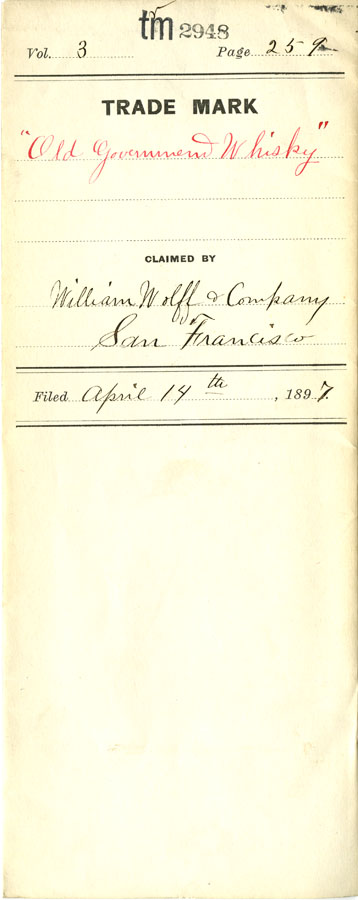 tm 2948
Vol. 3 Page 259
TRADE MARK
"Old Government Whisky"
CLAIMED BY
William Wolff & Company
San Francisco
Filed April 14th, 1897.